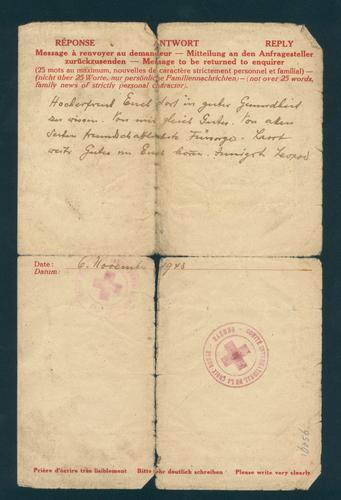 RÉPONSE ANTWORT REPLY
Message à renvoyer au demandeur — Mitteilung an den Anfragesteller
zurückzusenden — Message to be returned to enquirer
(25 mots au maximum, nouvelles de caractère strictement personnel et familial) —
(nicht über 25 Worte, nur persönliche Familiennachrichten) — (not over 25 words,
family news of strictly personal character).
Hocherfreut Euch dort in guter Gesundheit
zu wissen. Von mir gleich Gutes. Von allen
Seiten freundschaftlichste Fürsorge. Lasst
weiter Gutes von Euch hören. Innigst Leopold
Date: 6. November 1943
Datum:
COMITÉ INTERNATIONAL DE LA CROIX-ROUGE - GENÈVE -
Prière d'écrire très lisiblement Bitte sehr deutlich schreiben Please write very clearly